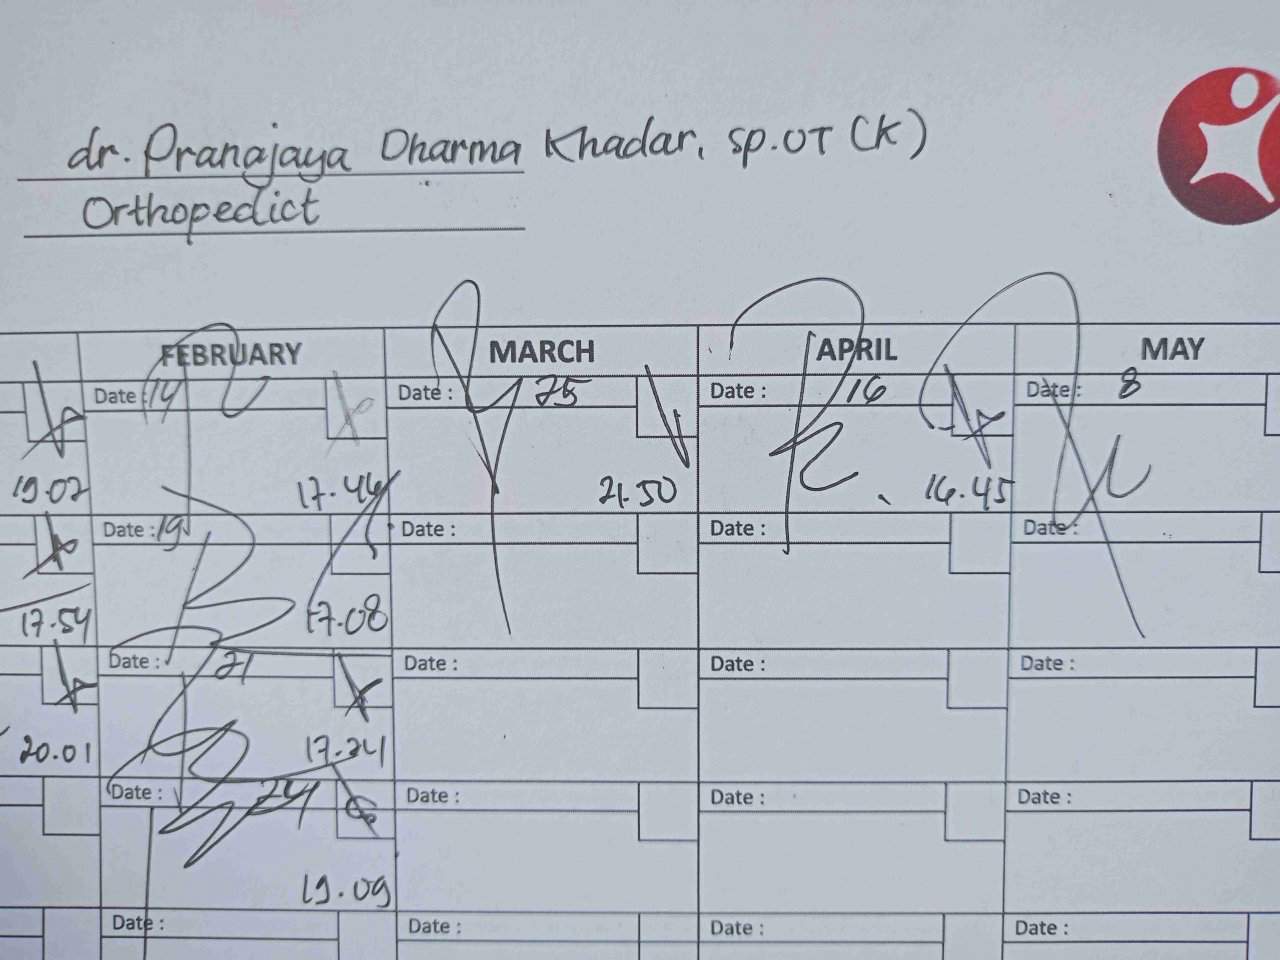 dr. Pranajaya Dharma Khadar, sp.OT (K)
Orthopedict
FEBRUARY MARCH APRIL MAY
Date : 14 Date : 25 Date : 16 Date : 8
19.02 17.46 21.50 16.45
Date : 19 Date : Date : Date :
17.54 17.08
Date : 21 Date : Date : Date :
20.01 17.24
Date : 24 Date : Date : Date :
19.09
Date : Date : Date : Date :